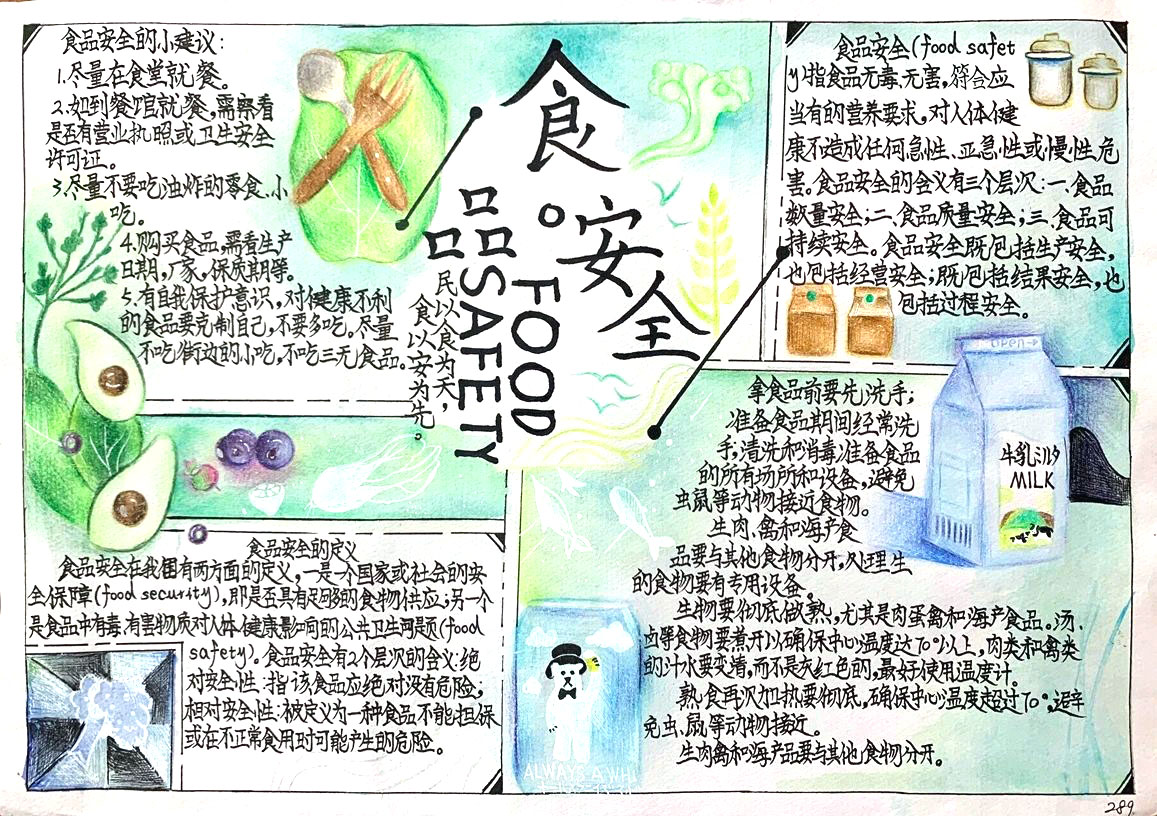 食品安全的小建议:
1.尽量在食堂就餐。
2.如到餐馆就餐,需察看
是否有营业执照或卫生安全
许可证。
3.尽量不要吃油炸的零食、小
吃。
4.购买食品,需看生产
日期,厂家,保质期等。
5.有自我保护意识,对健康不利
的食品要克制自己,不要多吃。尽量
不吃街边的小吃,不吃三无食品。
食品安全
FOOD
SAFETY
民以食为天,
食以安为先。
食品安全(food safet
y)指食品无毒、无害,符合应
当有的营养要求,对人体健
康不造成任何急性、亚急性或慢性危
害。食品安全的含义有三个层次:一、食品
数量安全;二、食品质量安全;三、食品可
持续安全。食品安全既包括生产安全,
也包括经营安全;既包括结果安全,也
包括过程安全。
食品安全的定义
食品安全在我国有两方面的定义,一是一个国家或社会的安
全保障(food security),即是否具有足够的食物供应;另一个
是食品中有毒、有害物质对人体健康影响的公共卫生问题(food
safety)。食品安全有2个层次的含义:绝
对安全性:指该食品应绝对没有危险;
相对安全性:被定义为一种食品不能担保
或在不正常食用时可能产生的危险。
拿食品前要先洗手;
准备食品期间经常洗
手,清洗和消毒准备食品
的所有场所和设备,避免
虫鼠等动物接近食物。
生肉、禽和海产食
品要与其他食物分开。处理生
的食物要有专用设备。
生物要彻底做熟,尤其是肉蛋禽和海产食品。汤、
卤等食物要煮开以确保中心温度达70°以上,肉类和禽类
的汁水要变清,而不是灰红色的,最好使用温度计。
熟食再次加热要彻底,确保中心温度超过70°。避
免虫、鼠等动物接近。
生肉禽和海产品要与其他食物分开。
open→
牛乳ミルク
MILK
ALWAYS A WHI
289